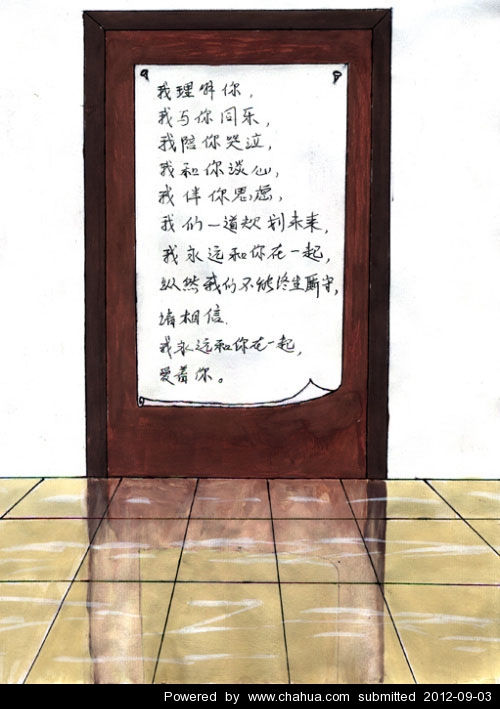 我理解你，
我与你同乐，
我陪你哭泣，
我和你谈心，
我伴你思想，
我们一道规划未来，
我永远和你在一起，
纵然我们不能终生厮守，
请相信.
我永远和你在一起，
爱着你。
Powered by www.chahua.com submitted 2012-09-03